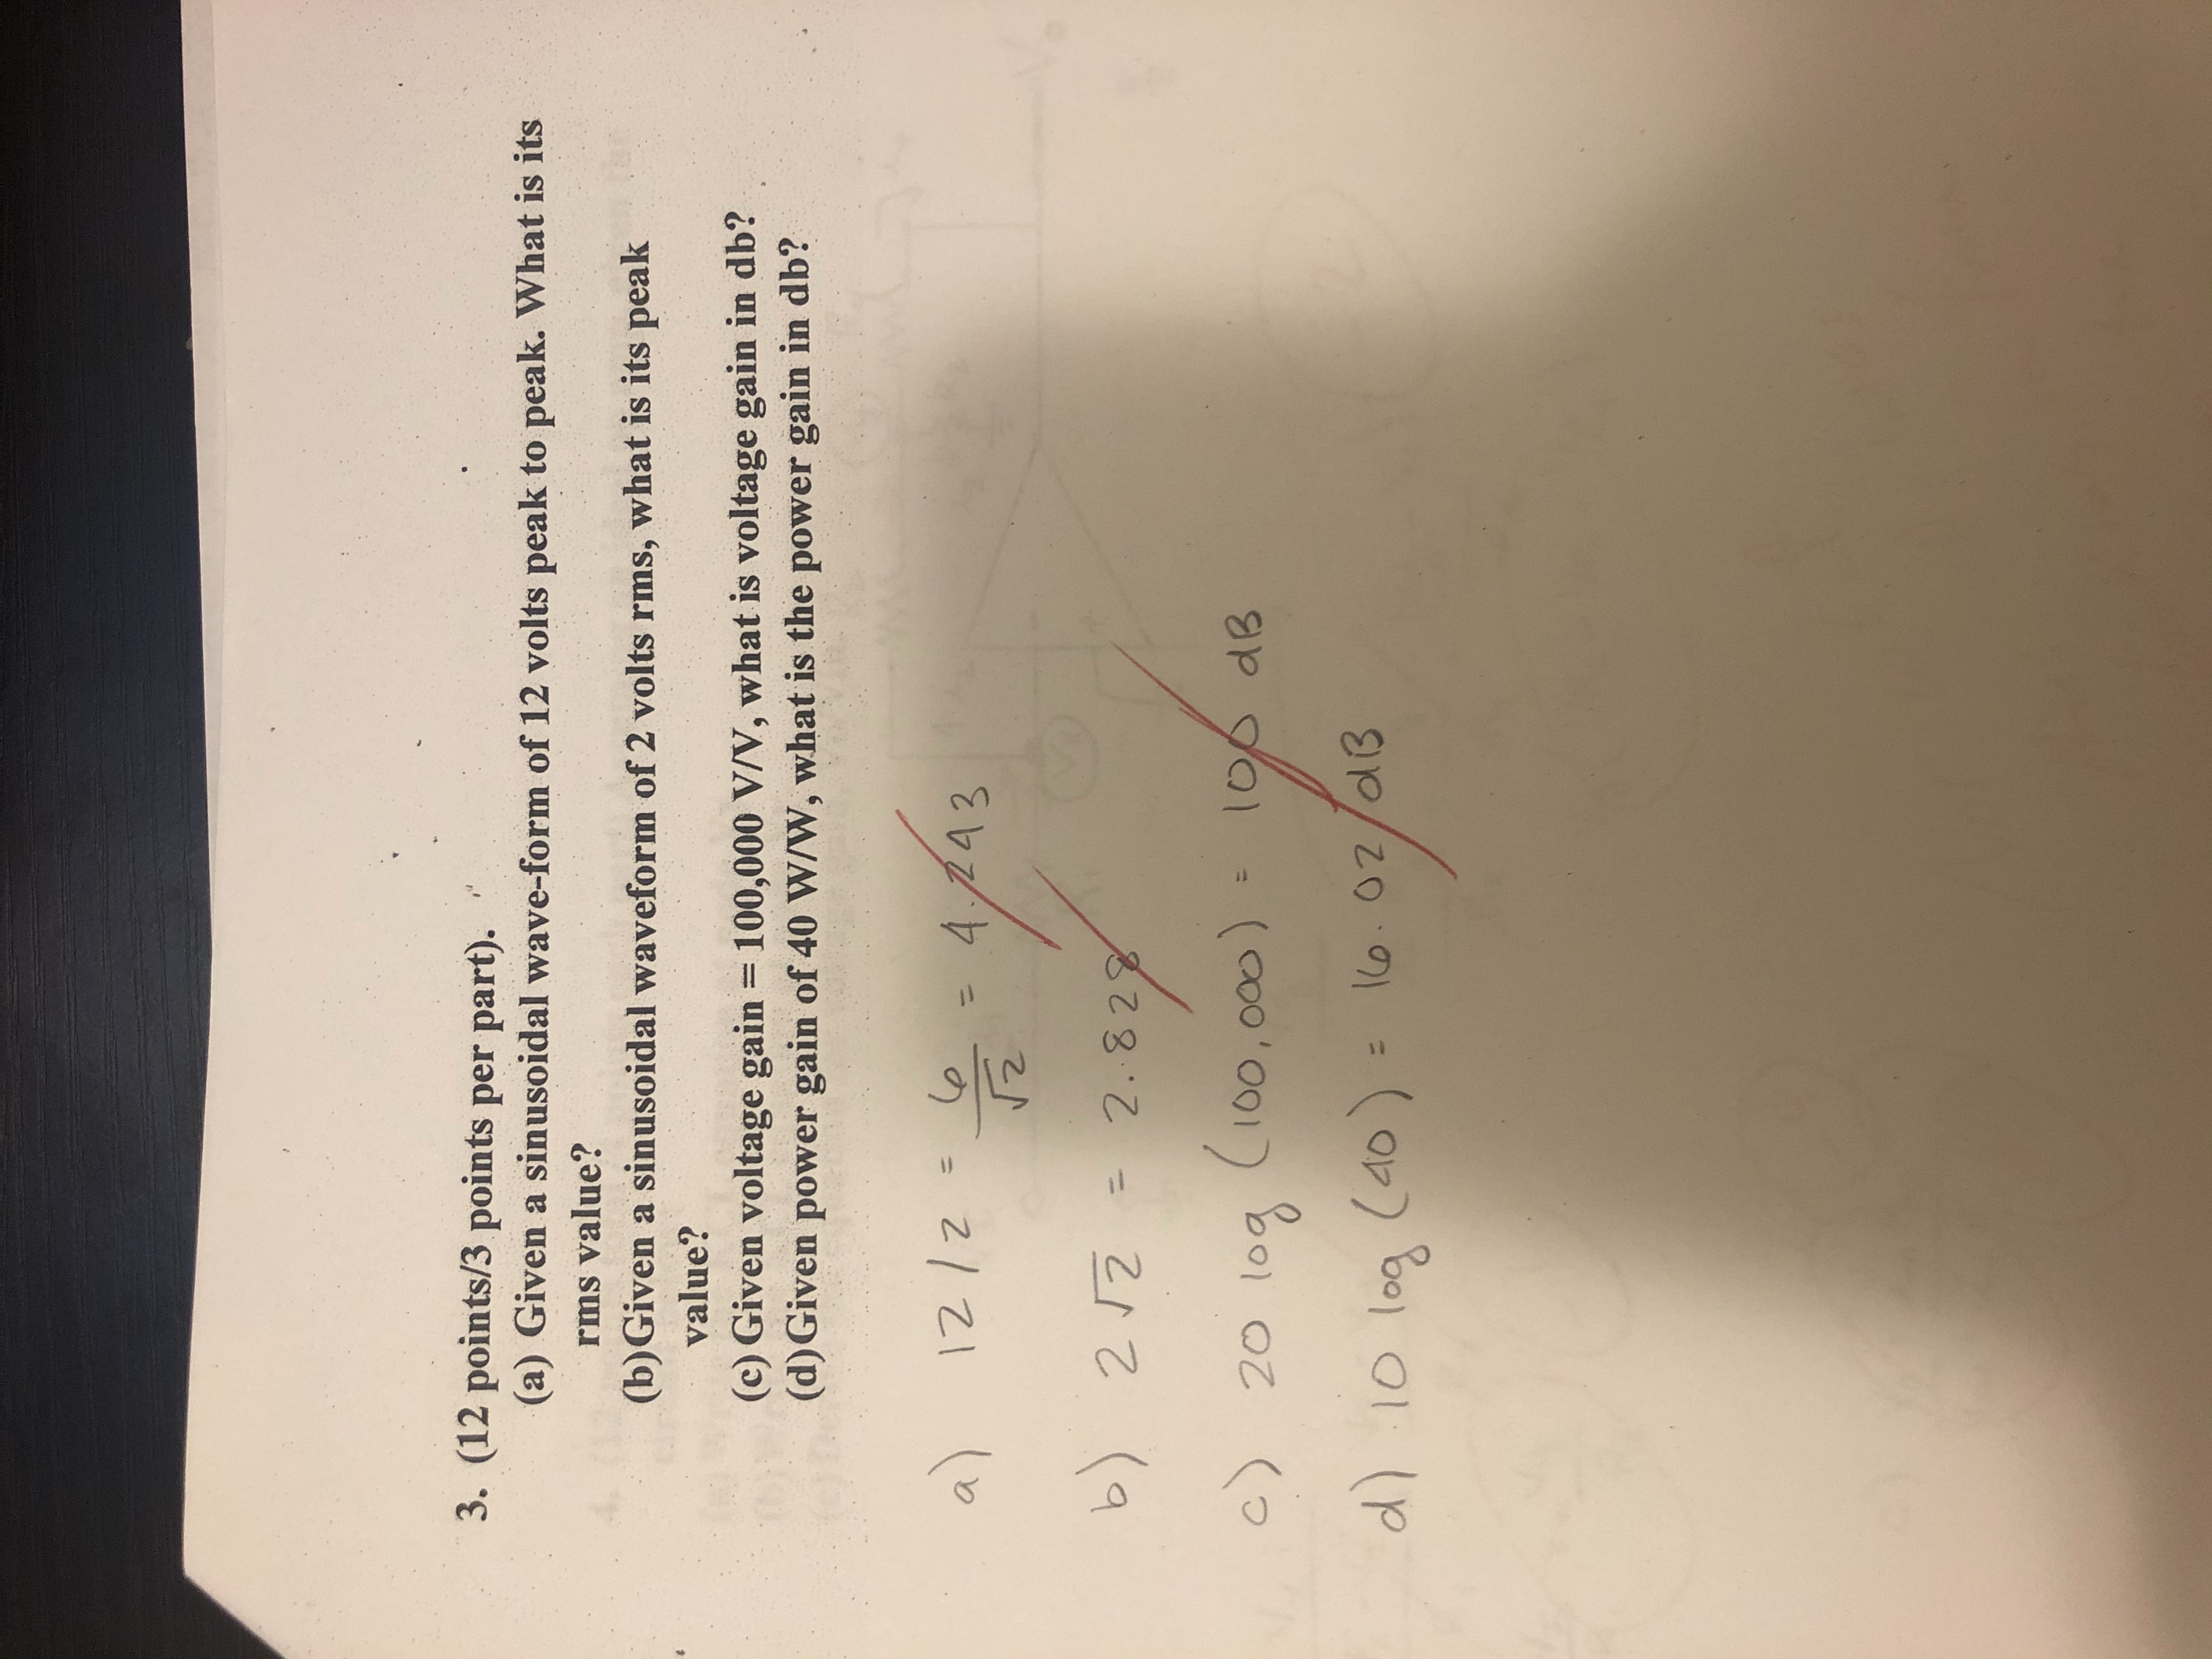 3. (12 points/3 points per part).
(a) Given a sinusoidal wave-form of 12 volts peak to peak. What is its
rms value?
(b)Given a sinusoidal waveform of 2 volts rms, what is its peak
value?
(c) Given voltage gain = 100,000 V/V, what is voltage gain in db?
(d)Given power gain of 40 W/W, what is the power gain in db?
a) 12/2 = 6/√2 = 4.243
b) 2√2 = 2.828
c) 20 log (100,000) = 100 dB
d) 10 log (40) = 16.02 dB